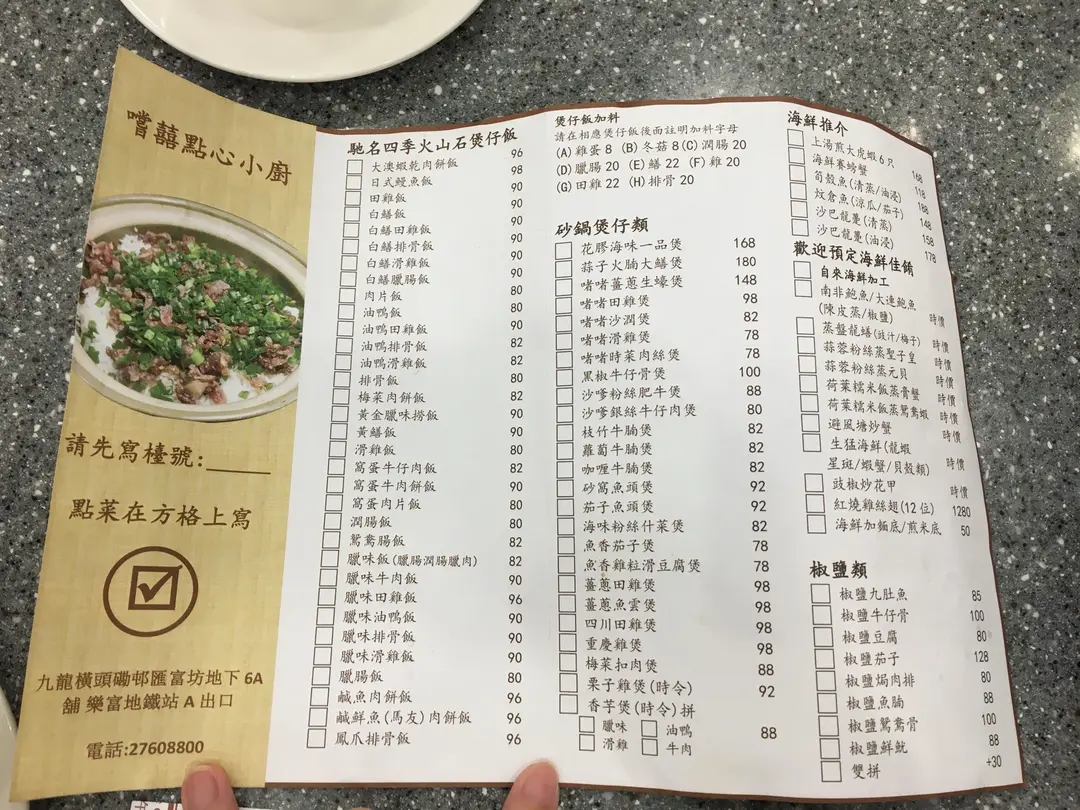 嚐囍點心小廚
請先寫檯號:______
點菜在方格上寫
九龍橫頭磡邨匯富坊地下 6A
舖 樂富地鐵站 A 出口
電話:27608800
馳名四季火山石煲仔飯
大澳蝦乾肉餅飯 96
日式鰻魚飯 98
田雞飯 90
白鱔飯 90
白鱔田雞飯 90
白鱔排骨飯 90
白鱔滑雞飯 90
白鱔臘腸飯 90
肉片飯 80
油鴨飯 80
油鴨田雞飯 90
油鴨排骨飯 82
油鴨滑雞飯 82
排骨飯 80
梅菜肉餅飯 82
黃金臘味撈飯 90
黃鱔飯 90
滑雞飯 80
窩蛋牛仔肉飯 82
窩蛋牛肉餅飯 90
窩蛋肉片飯 80
潤腸飯 80
鴛鴦腸飯 82
臘味飯(臘腸潤腸臘肉) 82
臘味牛肉飯 90
臘味田雞飯 96
臘味油鴨飯 90
臘味排骨飯 90
臘味滑雞飯 90
臘腸飯 80
鹹魚肉餅飯 96
鹹鮮魚(馬友)肉餅飯 96
鳳爪排骨飯 96
煲仔飯加料
請在相應煲仔飯後面註明加料字母
(A) 雞蛋 8 (B) 冬菇 8 (C) 潤腸 20
(D) 臘腸 20 (E) 鱔 22 (F) 雞 20
(G) 田雞 22 (H) 排骨 20
砂鍋煲仔類
花膠海味一品煲 168
蒜子火腩大鱔煲 180
啫啫薑蔥生蠔煲 148
啫啫田雞煲 98
啫啫沙潤煲 82
啫啫滑雞煲 78
啫啫時菜肉絲煲 78
黑椒牛仔骨煲 100
沙嗲粉絲肥牛煲 88
沙嗲銀絲牛仔肉煲 80
枝竹牛腩煲 82
蘿蔔牛腩煲 82
咖喱牛腩煲 82
砂窩魚頭煲 92
茄子魚頭煲 92
海味粉絲什菜煲 82
魚香茄子煲 78
魚香雞粒滑豆腐煲 78
薑蔥田雞煲 98
薑蔥魚雲煲 98
四川田雞煲 98
重慶雞煲 98
梅菜扣肉煲 88
栗子雞煲(時令) 92
香芋煲(時令)拼 88
臘味 油鴨
滑雞 牛肉
海鮮推介
上湯煎大虎蝦 6 只 168
海鮮賽螃蟹 118
筍殼魚(清蒸/油浸) 168
炆倉魚(涼瓜/茄子) 148
沙巴龍躉(清蒸) 158
沙巴龍躉(油浸) 178
歡迎預定海鮮佳餚
自來海鮮加工
南非鮑魚/大連鮑魚
(陳皮蒸/椒鹽) 時價
蒸盤龍鱔(豉汁/梅子) 時價
蒜蓉粉絲蒸聖子皇 時價
蒜蓉粉絲蒸元貝 時價
荷葉糯米飯蒸膏蟹 時價
荷葉糯米飯蒸鴛鴦蝦 時價
避風塘炒蟹 時價
生猛海鮮(龍蝦
星斑/蝦蟹/貝殼類) 時價
豉椒炒花甲 時價
紅燒雞絲翅(12 位) 1280
海鮮加麵底/煎米底 50
椒鹽類
椒鹽九肚魚 85
椒鹽牛仔骨 100
椒鹽豆腐 80
椒鹽茄子 128
椒鹽焗肉排 80
椒鹽魚腩 88
椒鹽鴛鴦骨 100
椒鹽鮮魷 88
雙拼 +30